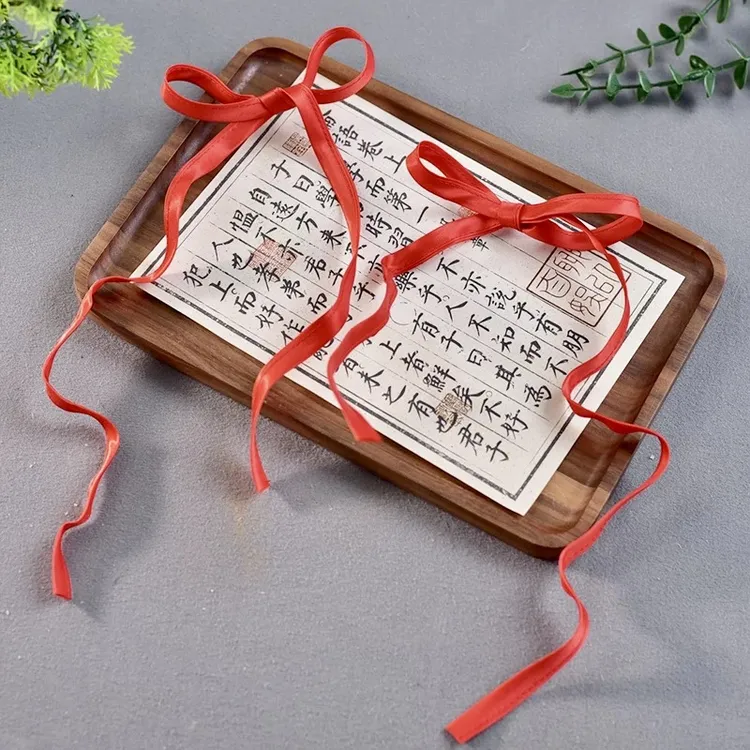 語卷上
學而第一
子曰學時習不亦說乎有朋
自遠方來樂乎人不知而不
慍不亦君子乎有子曰其為
人也孝弟而上者鮮矣不好
犯上而好作未之有也君子